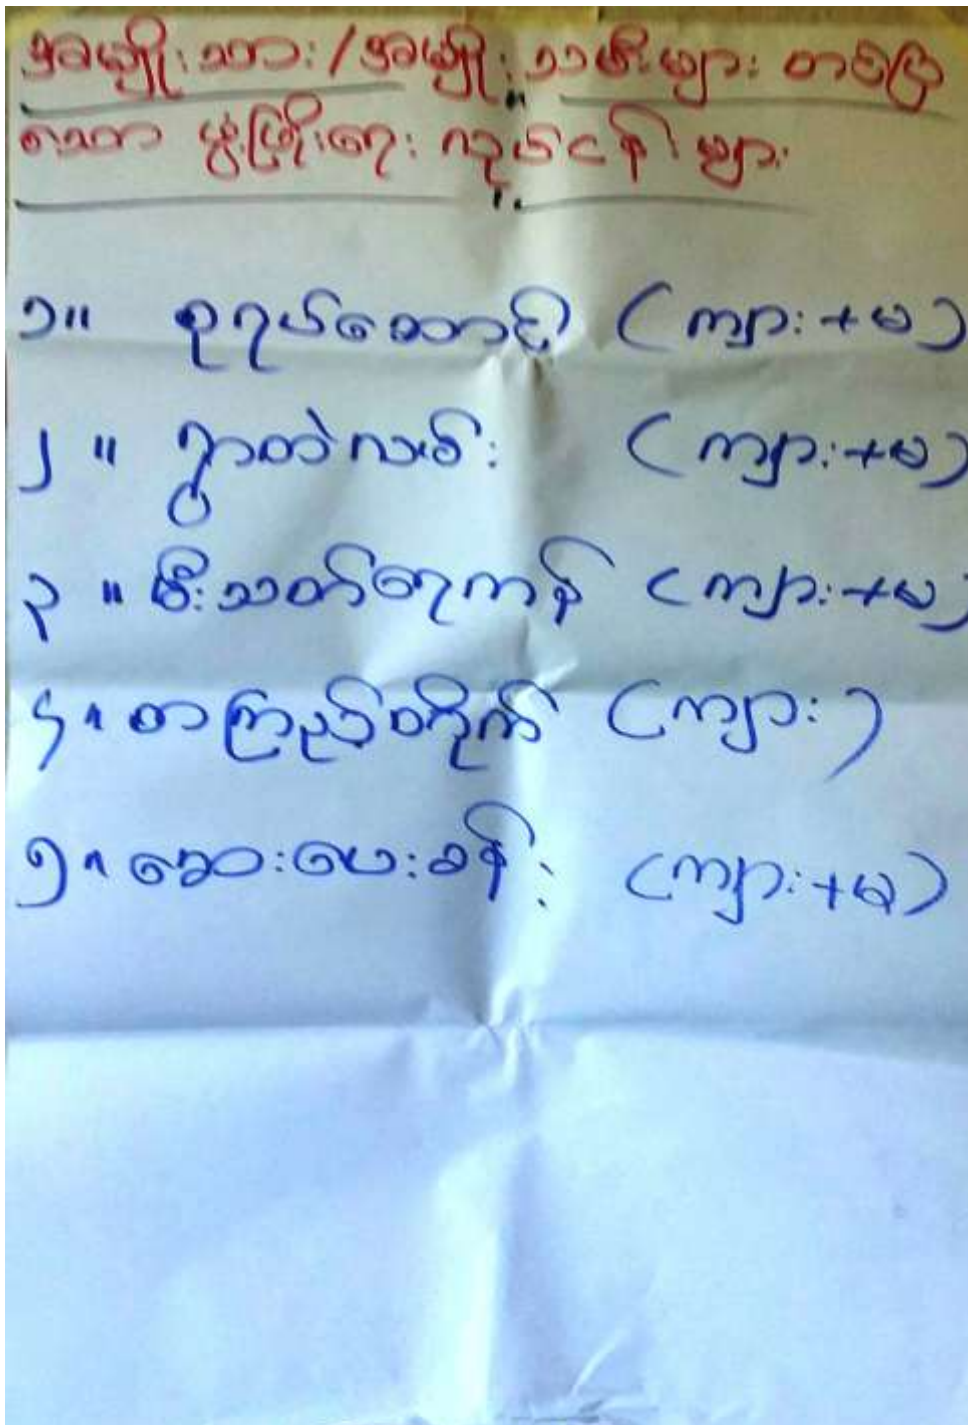 အမျိုးသား/အမျိုးသမီးများ တင်ပြ
သော ဖွံ့ဖြိုးရေး လုပ်ငန်းများ
၁။ မူရယ်ဆောင် (ကျား+မ)
၂။ ရွာထဲလမ်း (ကျား+မ)
၃။ မီးသတ်ရေကန် (ကျား+မ)
၄။ စာကြည့်တိုက် (ကျား)
၅။ ဆေးပေးခန်း (ကျား+မ)